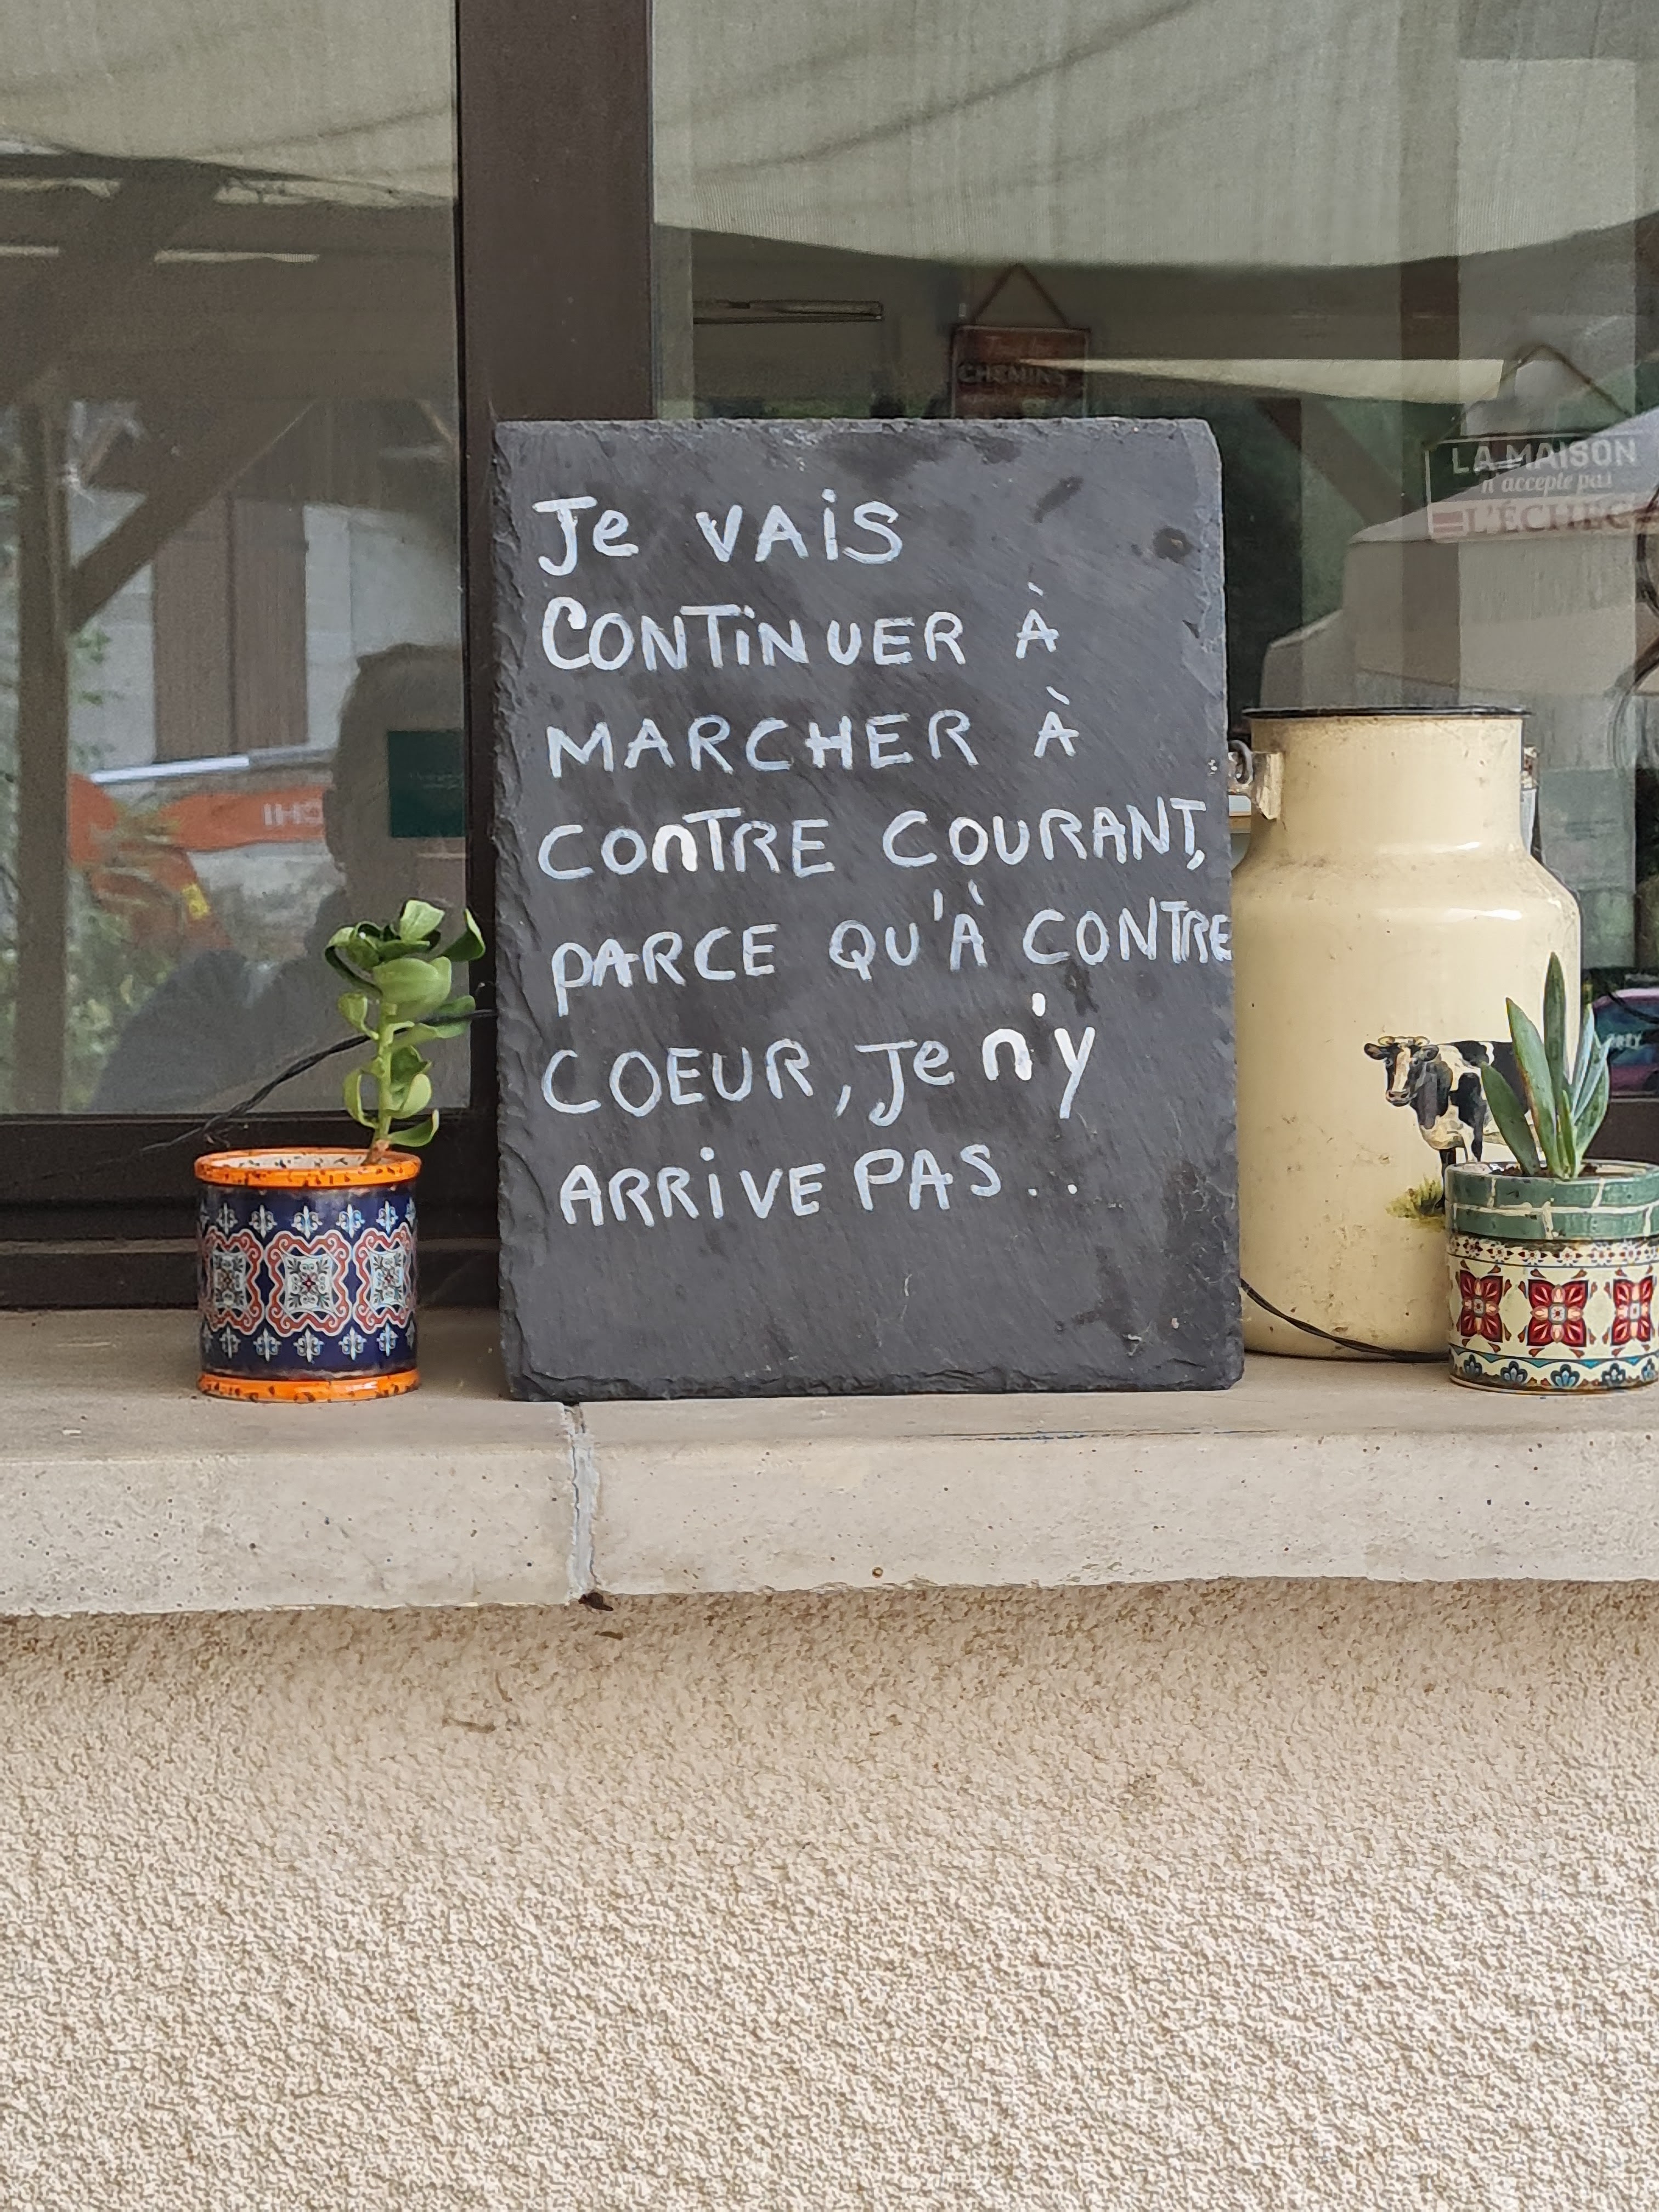 CHEMINS
LA MAISON
n'accepte pas
L'ÉCHEC
Je VAiS
CONTiNUER À
MARCHER À
CONTRE COURANT,
PARCE QU'À CONTRE
COEUR, Je n'y
ARRiVE PAS..